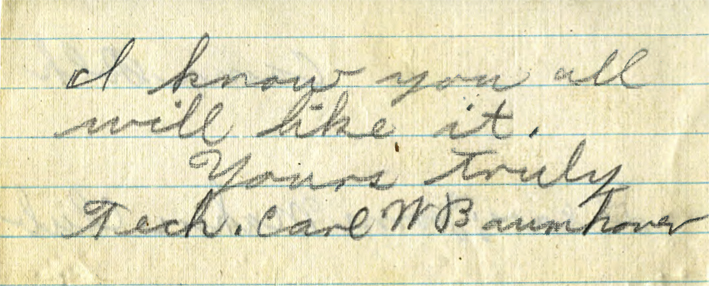 I know you all
will like it.
Yours truly
Tech. Carl W Baumhover